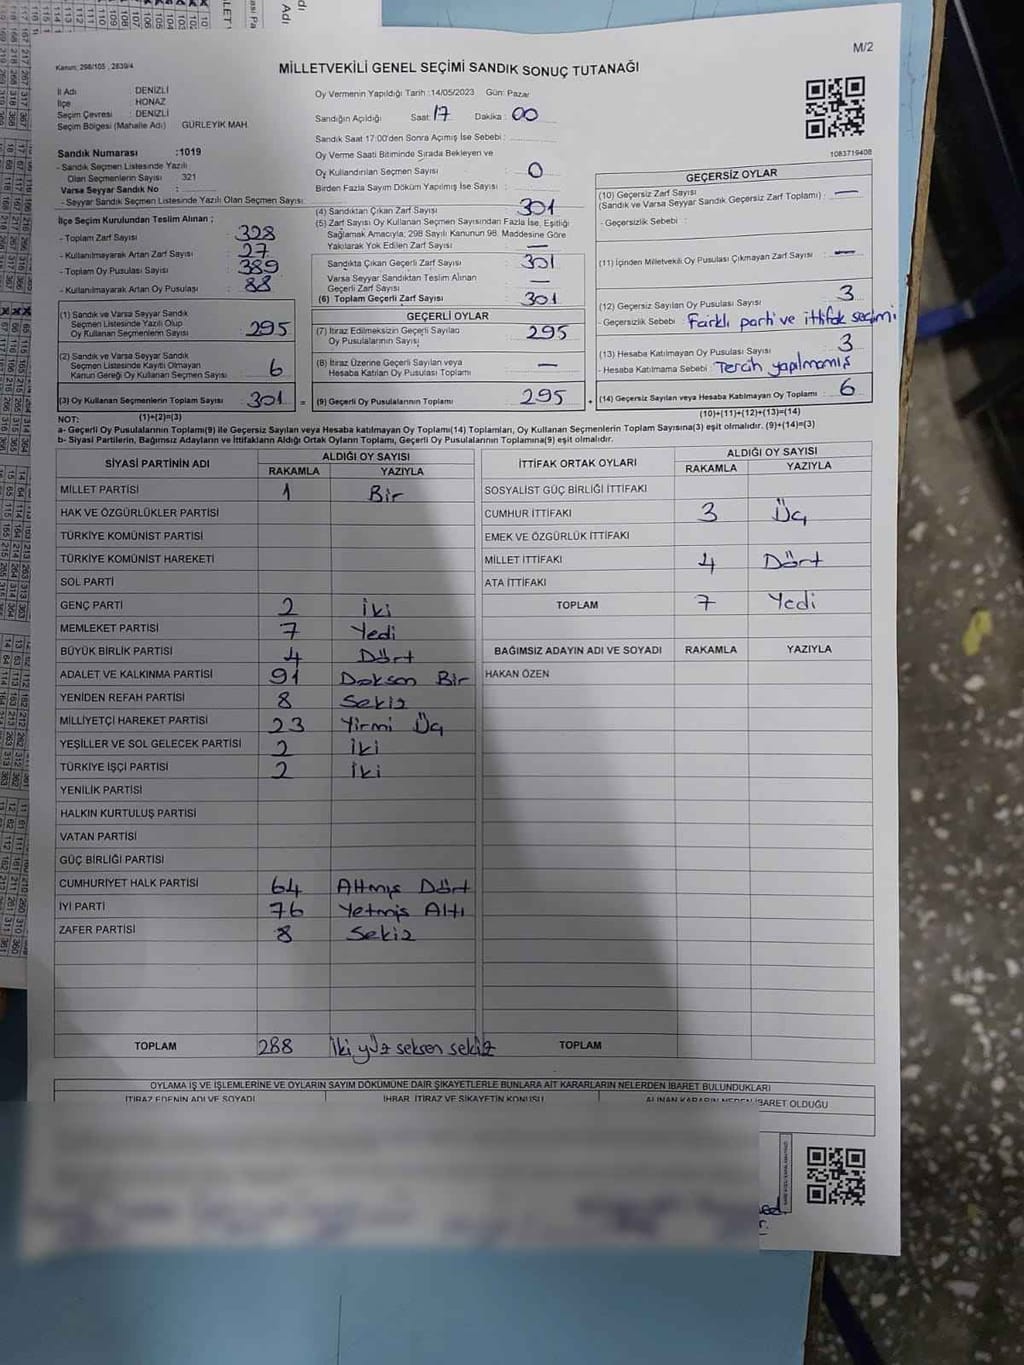 M/2
Kanun: 298/105 , 2839/4
MİLLETVEKİLİ GENEL SEÇİMİ SANDIK SONUÇ TUTANAĞI
İl Adı : DENİZLİ
İlçe : HONAZ
Seçim Çevresi : DENİZLİ
Seçim Bölgesi (Mahalle Adı) GÜRLEYİK MAH.
Oy Vermenin Yapıldığı Tarih :14/05/2023 Gün: Pazar
Sandığın Açıldığı Saat: 17 Dakika : 00
Sandık Saat 17:00'den Sonra Açımış İse Sebebi :
Oy Verme Saati Bitiminde Sırada Bekleyen ve
Oy Kullandırılan Seçmen Sayısı : 0
Birden Fazla Sayım Döküm Yapılmış İse Sayısı :
1083719408
Sandık Numarası :1019
- Sandık Seçmen Listesinde Yazılı
Olan Seçmenlerin Sayısı 321
Varsa Seyyar Sandık No :
- Seyyar Sandık Seçmen Listesinde Yazılı Olan Seçmen Sayısı:
İlçe Seçim Kurulundan Teslim Alınan ;
- Toplam Zarf Sayısı : 328
- Kullanılmayarak Artan Zarf Sayısı : 27
- Toplam Oy Pusulası Sayısı : 389
- Kullanılmayarak Artan Oy Pusulası : 88
(1) Sandık ve Varsa Seyyar Sandık
Seçmen Listesinde Yazılı Olup
Oy Kullanan Seçmenlerin Sayısı : 295
(2) Sandık ve Varsa Seyyar Sandık
Seçmen Listesinde Kayıtlı Olmayan
Kanun Gereği Oy Kullanan Seçmen Sayısı : 6
(3) Oy Kullanan Seçmenlerin Toplam Sayısı : 301 =
(4) Sandıktan Çıkan Zarf Sayısı : 301
(5) Zarf Sayısı Oy Kullanan Seçmen Sayısından Fazla İse, Eşitliği
Sağlamak Amacıyla; 298 Sayılı Kanunun 98. Maddesine Göre
Yakılarak Yok Edilen Zarf Sayısı : —
Sandıkta Çıkan Geçerli Zarf Sayısı : 301
Varsa Seyyar Sandıktan Teslim Alınan
Geçerli Zarf Sayısı : —
(6) Toplam Geçerli Zarf Sayısı : 301
GEÇERLİ OYLAR
(7) İtiraz Edilmeksizin Geçerli Sayılan
Oy Pusulalarının Sayısı : 295
(8) İtiraz Üzerine Geçerli Sayılan veya
Hesaba Katılan Oy Pusulası Toplamı : —
(9) Geçerli Oy Pusulalarının Toplamı : 295 +
GEÇERSİZ OYLAR
(10) Geçersiz Zarf Sayısı
(Sandık ve Varsa Seyyar Sandık Geçersiz Zarf Toplamı) : —
- Geçersizlik Sebebi :
(11) İçinden Milletvekili Oy Pusulası Çıkmayan Zarf Sayısı : —
(12) Geçersiz Sayılan Oy Pusulası Sayısı : 3
- Geçersizlik Sebebi : Farklı parti ve ittifak seçimi
(13) Hesaba Katılmayan Oy Pusulası Sayısı : 3
- Hesaba Katılmama Sebebi : Tercih yapılmamış
(14) Geçersiz Sayılan veya Hesaba Katılmayan Oy Toplamı : 6
NOT: (1)+(2)=(3) (10)+(11)+(12)+(13)=(14)
a- Geçerli Oy Pusulalarının Toplamı(9) ile Geçersiz Sayılan veya Hesaba katılmayan Oy Toplamı(14) Toplamları, Oy Kullanan Seçmenlerin Toplam Sayısına(3) eşit olmalıdır. (9)+(14)=(3)
b- Siyasi Partilerin, Bağımsız Adayların ve İttifakların Aldığı Ortak Oyların Toplamı, Geçerli Oy Pusulalarının Toplamına(9) eşit olmalıdır.
SİYASİ PARTİNİN ADI ALDIĞI OY SAYISI
RAKAMLA YAZIYLA
MİLLET PARTİSİ 1 Bir
HAK VE ÖZGÜRLÜKLER PARTİSİ
TÜRKİYE KOMÜNİST PARTİSİ
TÜRKİYE KOMÜNİST HAREKETİ
SOL PARTİ
GENÇ PARTİ 2 İki
MEMLEKET PARTİSİ 7 Yedi
BÜYÜK BİRLİK PARTİSİ 4 Dört
ADALET VE KALKINMA PARTİSİ 91 Doksan Bir
YENİDEN REFAH PARTİSİ 8 Sekiz
MİLLİYETÇİ HAREKET PARTİSİ 23 Yirmi Üç
YEŞİLLER VE SOL GELECEK PARTİSİ 2 İki
TÜRKİYE İŞÇİ PARTİSİ 2 İki
YENİLİK PARTİSİ
HALKIN KURTULUŞ PARTİSİ
VATAN PARTİSİ
GÜÇ BİRLİĞİ PARTİSİ
CUMHURİYET HALK PARTİSİ 64 Altmış Dört
İYİ PARTİ 76 Yetmiş Altı
ZAFER PARTİSİ 8 Sekiz
TOPLAM 288 İki yüz seksen sekiz
İTTİFAK ORTAK OYLARI ALDIĞI OY SAYISI
RAKAMLA YAZIYLA
SOSYALİST GÜÇ BİRLİĞİ İTTİFAKI
CUMHUR İTTİFAKI 3 Üç
EMEK VE ÖZGÜRLÜK İTTİFAKI
MİLLET İTTİFAKI 4 Dört
ATA İTTİFAKI
TOPLAM 7 Yedi
BAĞIMSIZ ADAYIN ADI VE SOYADI RAKAMLA YAZIYLA
HAKAN ÖZEN
TOPLAM
OYLAMA İŞ VE İŞLEMLERİNE VE OYLARIN SAYIM DÖKÜMÜNE DAİR ŞİKAYETLERLE BUNLARA AİT KARARLARIN NELERDEN İBARET BULUNDUKLARI
İTİRAZ EDENİN ADI VE SOYADI İHBAR, İTİRAZ VE ŞİKAYETİN KONUSU ALINAN KARARIN NEDEN İBARET OLDUĞU